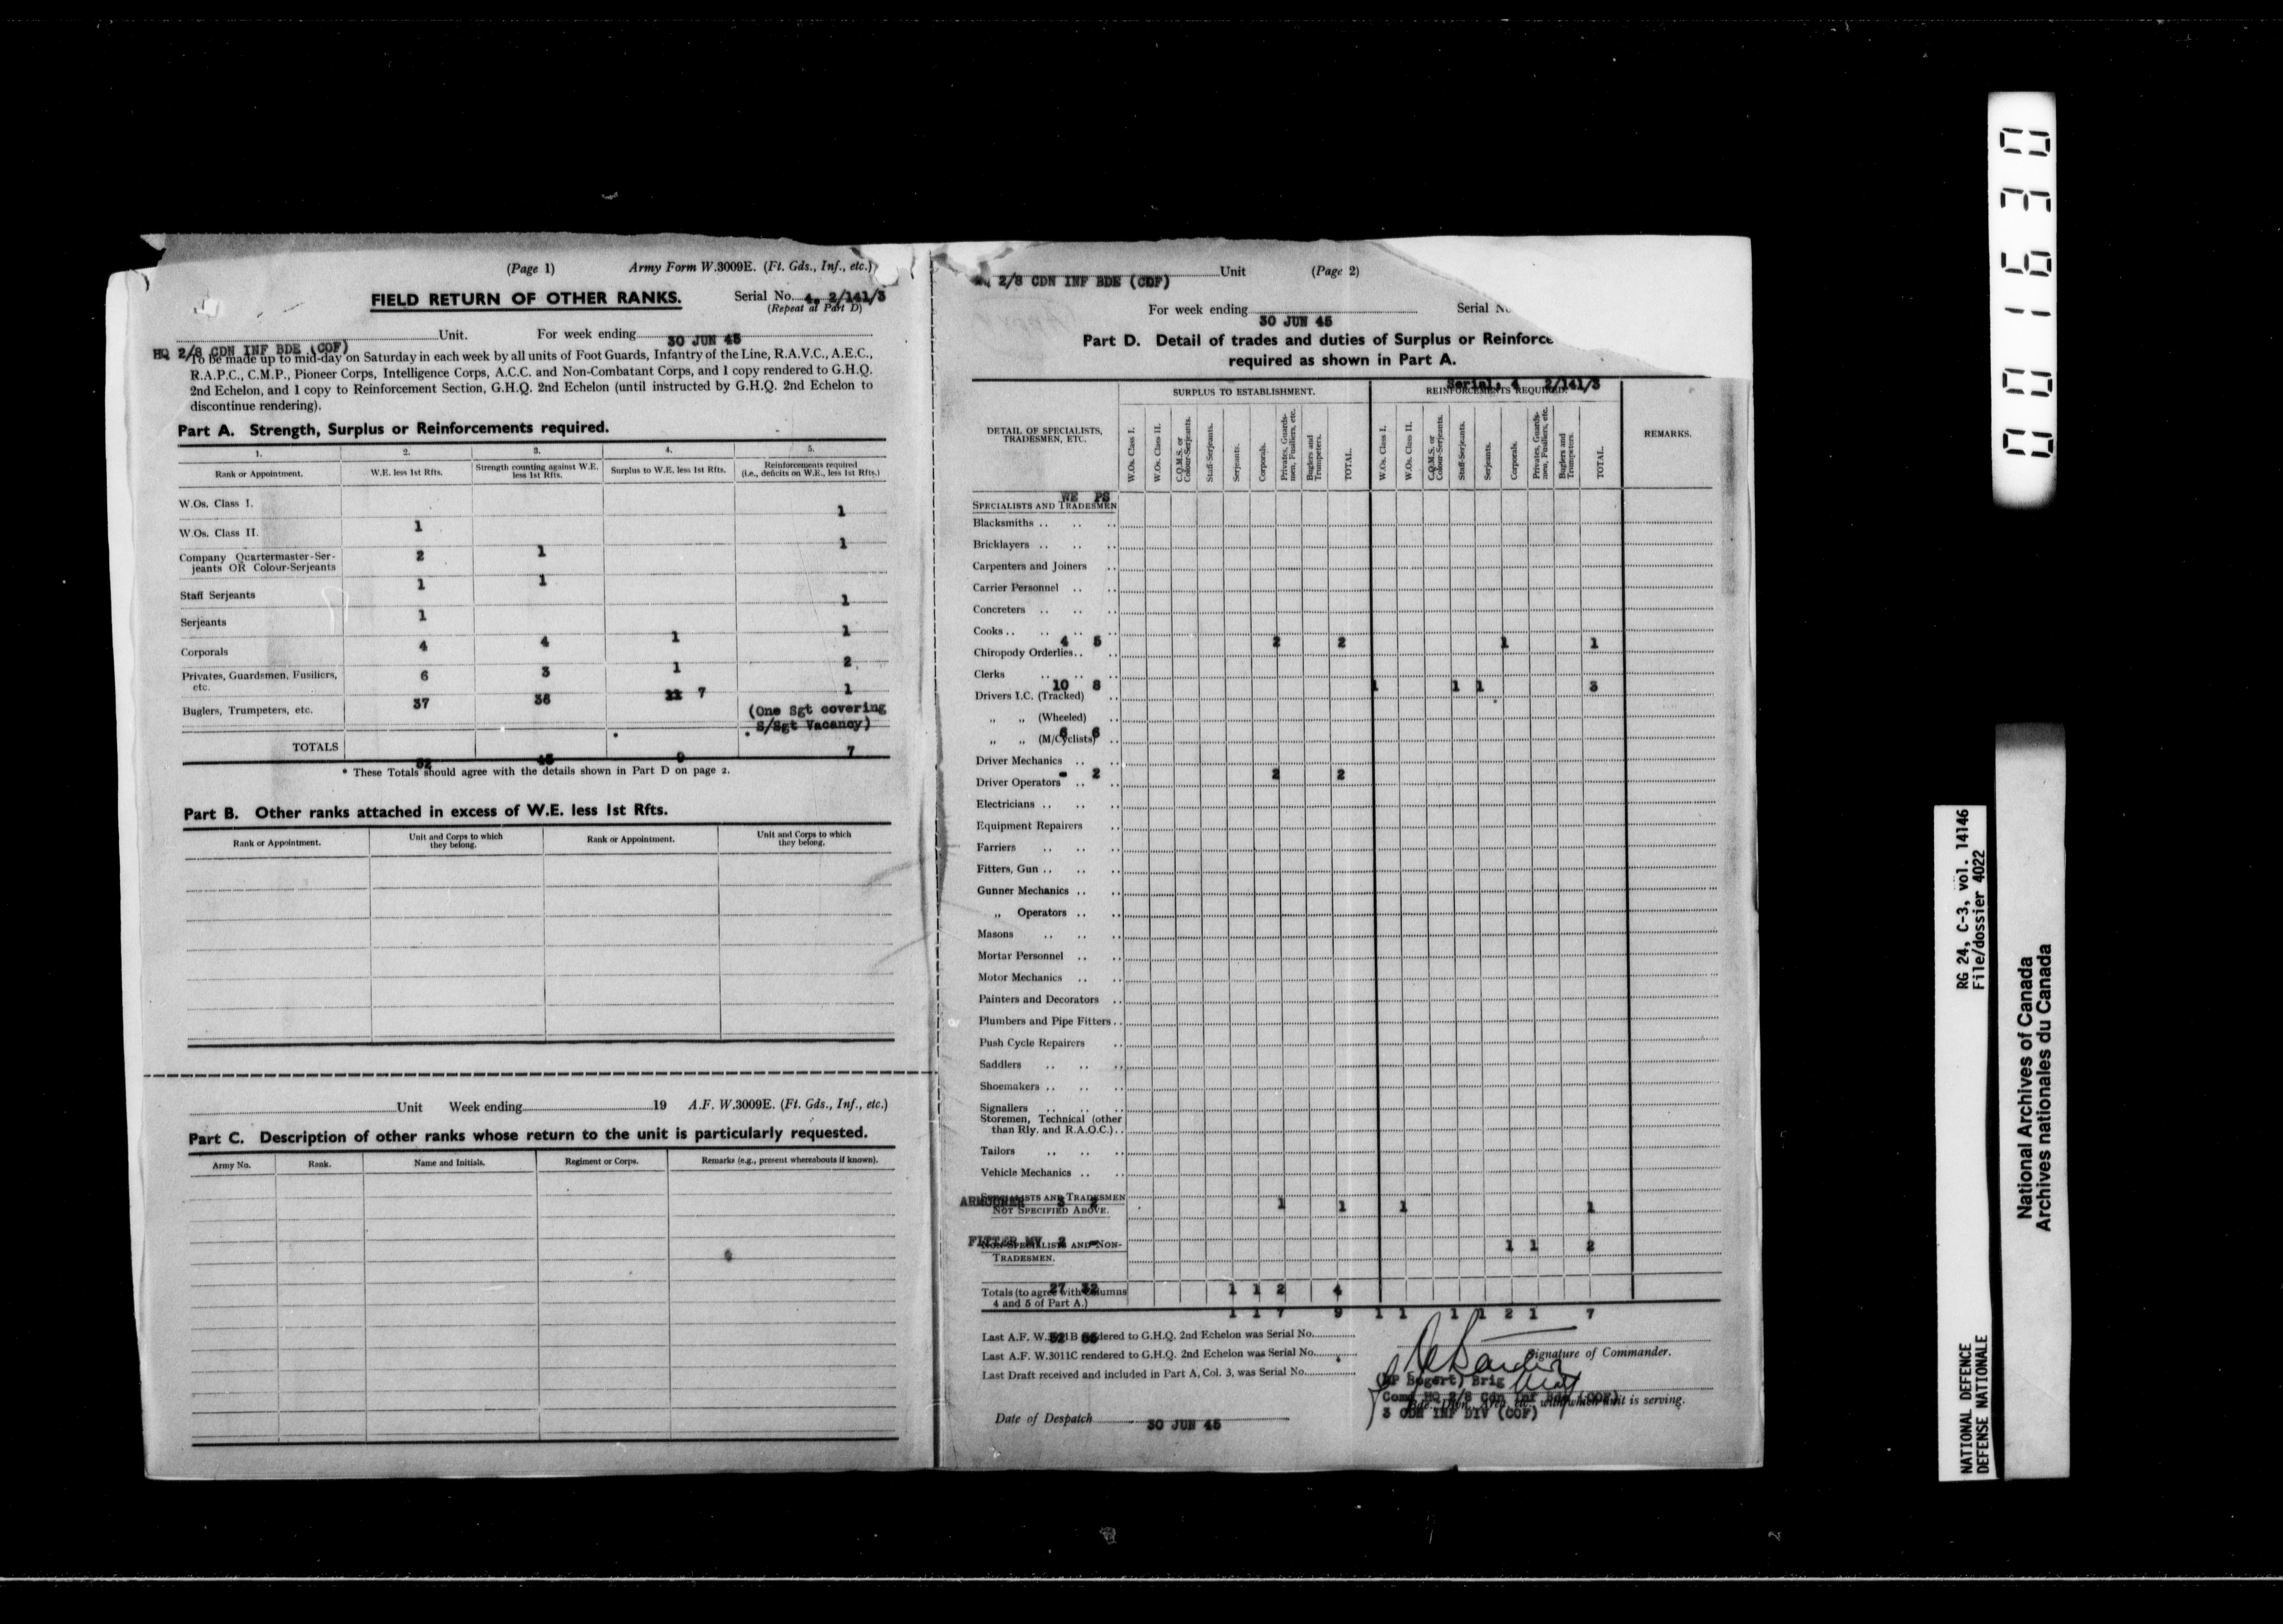 (Page 1) Army Form W.3009E. (Ft. Gds., Inf., etc.)
FIELD RETURN OF OTHER RANKS. Serial No. 4. 2/141/3
(Repeat at Part D)
Unit. For week ending 30 JUN 45
HQ 2/8 CDN INF BDE (COF)
To be made up to mid-day on Saturday in each week by all units of Foot Guards, Infantry of the Line, R.A.V.C., A.E.C.,
R.A.P.C., C.M.P., Pioneer Corps, Intelligence Corps, A.C.C. and Non-Combatant Corps, and 1 copy rendered to G.H.Q.
2nd Echelon, and 1 copy to Reinforcement Section, G.H.Q. 2nd Echelon (until instructed by G.H.Q. 2nd Echelon to
discontinue rendering).
Part A. Strength, Surplus or Reinforcements required.
1. 2. 3. 4. 5.
Rank or Appointment. W.E. less 1st Rfts. Strength counting against W.E. less 1st Rfts. Surplus to W.E. less 1st Rfts. Reinforcements required (i.e., deficits on W.E., less 1st Rfts.)
W.Os. Class I.
1
W.Os. Class II. 1
1
Company Quartermaster-Ser- 2 1
jeants OR Colour-Serjeants
1 1
Staff Serjeants
1
Serjeants 1
1
Corporals 4 4 1
2
Privates, Guardsmen, Fusiliers, 6 3 1
etc.
1
Buglers, Trumpeters, etc. 37 36 7
(One Sgt covering
S/Sgt Vacancy)
TOTALS
52 45 9 7
* These Totals should agree with the details shown in Part D on page 2.
Part B. Other ranks attached in excess of W.E. less 1st Rfts.
Rank or Appointment. Unit and Corps to which they belong. Rank or Appointment. Unit and Corps to which they belong.
Unit Week ending 19 A.F. W.3009E. (Ft. Gds., Inf., etc.)
Part C. Description of other ranks whose return to the unit is particularly requested.
Army No. Rank. Name and Initials. Regiment or Corps. Remarks (e.g., present whereabouts if known).
Unit (Page 2)
2/8 CDN INF BDE (COF)
For week ending 30 JUN 45 Serial
Part D. Detail of trades and duties of Surplus or Reinforce
required as shown in Part A.
Serial. 4 2/141/3
SURPLUS TO ESTABLISHMENT. REINFORCEMENTS REQUIRED.
DETAIL OF SPECIALISTS, TRADESMEN, ETC.
W.Os. Class I. W.Os. Class II. C.Q.M.S. or Colour-Serjeants. Staff-Serjeants. Serjeants. Corporals. Privates, Guardsmen, Fusiliers, etc. Buglers and Trumpeters. TOTAL.
W.Os. Class I. W.Os. Class II. C.Q.M.S. or Colour-Serjeants. Staff-Serjeants. Serjeants. Corporals. Privates, Guardsmen, Fusiliers, etc. Buglers and Trumpeters. TOTAL.
REMARKS.
WE PS
SPECIALISTS AND TRADESMEN
Blacksmiths
Bricklayers
Carpenters and Joiners
Carrier Personnel
Concreters
Cooks
4 5 2 2 1 1
Chiropody Orderlies
Clerks
10 8 1 1 1 3
Drivers I.C. (Tracked)
„ „ (Wheeled)
6 6
„ „ (M/Cyclists)
Driver Mechanics
- 2 2 2
Driver Operators
Electricians
Equipment Repairers
Farriers
Fitters, Gun
Gunner Mechanics
„ Operators
Masons
Mortar Personnel
Motor Mechanics
Painters and Decorators
Plumbers and Pipe Fitters
Push Cycle Repairers
Saddlers
Shoemakers
Signallers
Storemen, Technical (other
than Rly. and R.A.O.C.)
Tailors
Vehicle Mechanics
SPECIALISTS AND TRADESMEN
ARMOURER 3 2 1 1 1 1
NOT SPECIFIED ABOVE.
FITTER MV 2 - 1 1 2
NON-SPECIALISTS AND NON-
TRADESMEN.
27 32 1 1 2 4
Totals (to agree with Columns
4 and 5 of Part A.)
1 1 7 9 1 1 1 1 2 1 7
Last A.F. W. rendered to G.H.Q. 2nd Echelon was Serial No.
Last A.F. W.3011C rendered to G.H.Q. 2nd Echelon was Serial No.
Last Draft received and included in Part A, Col. 3, was Serial No.
Signature of Commander.
(MP Bogert) Brig
Comd HQ 2/8 Cdn Inf Bde (COF)
Bde., Divn., Area, etc., with which unit is serving.
3 CDN INF DIV (COF)
Date of Despatch 30 JUN 45
001630
RG 24, C-3, vol. 14146
File/dossier 4022
NATIONAL DEFENCE
DEFENSE NATIONALE
National Archives of Canada
Archives nationales du Canada